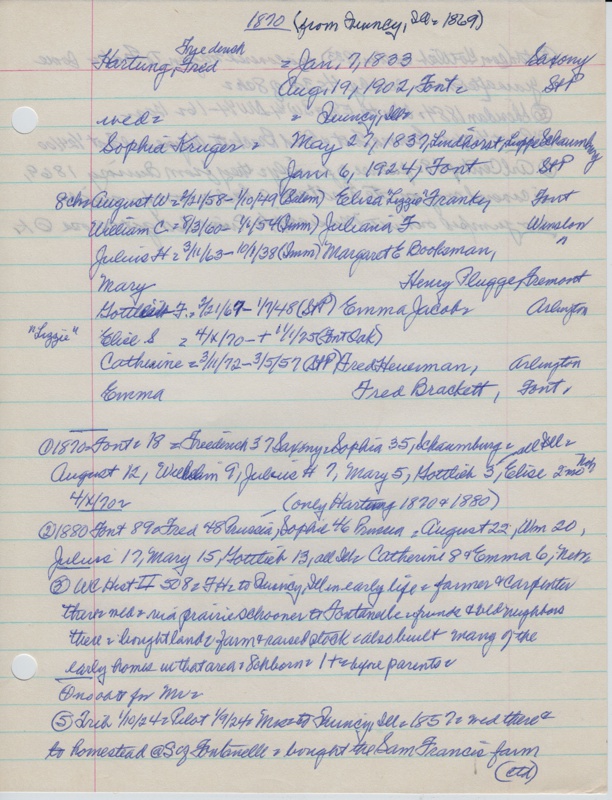 1870 (from Quincy, Ill = 1869)
Frederick
Hartung, Fred = Jan, 7, 1833 Saxony
Aug, 19, 1902, Font = St P
wed = = Quincy, Ills
Sophia Kruger = May 27, 1837, Lindhorst, Lippe Schaumburg
Jan 6, 1924, Font St P
8 chs August W = 2/21/58 - 1/10/49 (Salem) Elisa "Lizzie" Franke, Font
William C = 8/3/60 - 1/6/54 (Imm) Juliana F Winslow
"
Julius H = 3/11/63 - 10/1/38 (Imm) Margaret E Booksman,
Mary Henry Plugge, Fremont
Gottlieb F. = 2/21/67 - 1/7/48 (St P) Emma Jacobs Arlington
"Lizzie" Elise S = 4/x/70 - + 1/1/25 (Font Oak)
Catherine = 3/11/72 - 3/5/57 (St P) Fred Heuerman, Arlington
Emma Fred Brackett, Font,
① 1870 = Font = 18 = Freederich 37 Saxony = Sophia 35, Schaumburg = all Ill =
August 12, Wilhelm 9, Julius H 7, Mary 5, Gottlieb 3, Elise 2mo Neb
4/x/70 = (only Hartung 1870 & 1880)
② 1880 Font 89 = Fred 48 Prussia, Sophie 46 Prussia = August 22, Wm 20,
Julius 17, Mary 15, Gottlieb 13, all Ill = Catherine 8 & Emma 6, Neb =
③ WC Hist II 508 = FH = to Quincy, Ill in early life = farmer & carpenter
there = wed = via prairie schooner to Fontanelle = funds & bld neighbors
there = bought land = farm & raised stock = also built many of the
early homes in that area = 8 ch born = 1 + = byre parents =
One vote for Mr =
⑤ Trib 1/10/24 = Pilot 1/9/24 = Mrs = to Quincy, Ill = 1857 = wed there =
to homestead @ S of Fontanelle = bought the Sam Francis farm
(ctd)